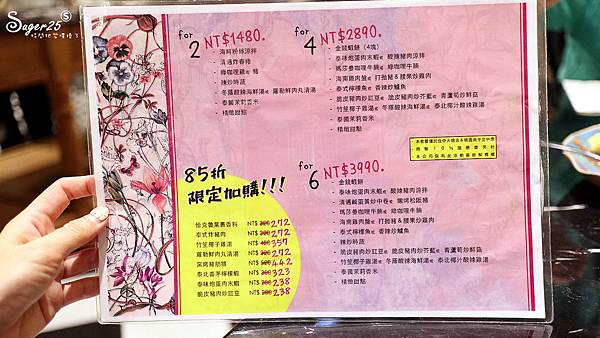 Sager25
for 2 NT$1480.
· 海鮮粉絲涼拌
· 清邁炸春捲
· 綠咖哩雞or豬
· 辣炒時蔬
· 冬蔭酸辣海鮮湯or羅勒鮮肉丸清湯
· 泰國茉莉香米
· 精緻甜點
for 4 NT$2890.
· 金錢蝦餅 (4塊)
· 泰味炮蛋肉末蝦or酸辣豬肉涼拌
· 瑪莎曼咖哩牛腩or綠咖哩牛腩
· 海南雞肉飯or打拋豬&腰果炒雞肉
· 泰式檸檬魚or香辣炒鱸魚
· 脆皮豬肉炒豇豆or脆皮豬肉炒芥藍or青蘆筍炒鮮菇
· 竹笙椰子雞湯or冬蔭酸辣海鮮湯or泰北椰汁酸辣雞湯
· 泰國茉莉香米
· 精緻甜點
85折
限定加購!!!
恰克魯葉裹香料 NT$ 272
泰式炸豬肉 NT$ 272
竹笙椰子雞湯 NT$ 357
羅勒鮮肉丸清湯 NT$ 272
窯烤豬肋排 NT$ 442
泰北香茅檸檬蝦 NT$ 323
泰味炮蛋肉末蝦 NT$ 238
脆皮豬肉炒豇豆 NT$ 238
for 6 NT$3990.
· 金錢蝦餅
· 泰味炮蛋肉末蝦or酸辣豬肉涼拌
· 清邁鹹蛋黃炒中卷or嫩烤松阪豬
· 瑪莎曼咖哩牛腩or綠咖哩牛腩
· 海南雞肉飯or打拋豬&腰果炒雞肉
· 泰式檸檬魚or香辣炒鱸魚
· 辣炒時蔬
· 脆皮豬肉炒豇豆or脆皮豬肉炒芥藍or青蘆筍炒鮮菇
· 竹笙椰子雞湯or冬蔭酸辣海鮮湯or泰北椰汁酸辣雞湯
· 泰國茉莉香米
· 精緻甜點